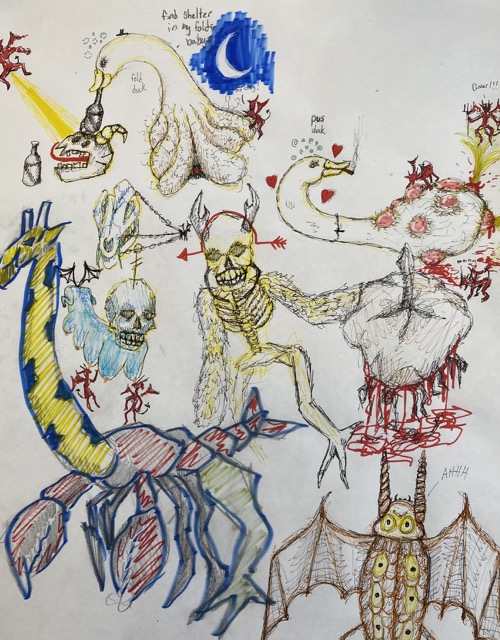 find shelter
in my folds
baby
fold
duck
pus
duck
AHHH